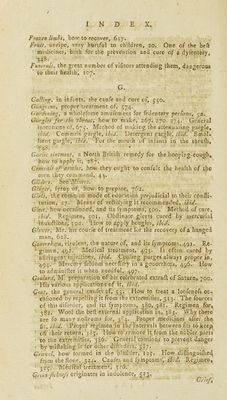 I N D E X.
Frozen limbs, how to recover, 617.
Fruit, unripe, very hurtful to children, 20. One of the best
medicines, both for the prevention and cure of a dysentery,
348.
Funerals, the great number of visitors attending them, dangerous
to their health, 107.
G.
Galling, in infants, the cause and cure of, 550.
Gangrene, proper treatment of, 573.
Gardening, a wholesome amusement for sedentary persons, 52.
Gargles for sore throat, how to make, 267, 270, 274. General
intentions of, 672. Method of making the attenuating gargle,
ibid. Common gargle, ibid. Detergent gargle, ibid. Emol-
lient gargle, ibid. For the mouth of infants in the thrush,
Garlic ointment, a North British remedy for the hooping-cough,
how to apply it, 287.
Generals of armies, how they ought to consult the health of the
men they command, 44.
Ginger, syrup of, how to prepare, 762.
Girls, the common mode of education prejudicial to their consti-
tution, 27. Means of rectifying it recommended, ibid.
Gleet, how occasioned, and its symptoms, 500. Method of cure,
ibid. Regimen, 501. Obstinate gleets cured by mercurial
inunctions, 502. How to apply bougies, ibid.
Glover, Mr. his course of treatment for the recovery of a hanged
man, 628.
Gonorrhœa, virulent, the nature of, and its symptoms, 491. Re-
gimen, 492. Medical treatment, 493. Is often cured by
astringent injections, ibid. Cooling purges always proper in,
494. Mercury seldom necessary in a gonorrhœa, 496. How
to administer it when needful, 497.
Goulard, M. preparation of his celebrated extract of Saturn, 700.
His various applications of it, ibid.
Gout, the general causes of, 55. How to treat a looseness oc-
casioned by repelling it from the extremities, 313. The sources
of this disorder, and its symptoms, 380, 381. Regimen for,
382. Wool the best external application in, 383. Why there
are so many nostrums for, 384. Proper medicines after the
fit, ibid. Proper regimen in the intervals between fits to keep
off their return, 385. How to remove it from the nobler parts
to the extremities, 386. General cautions to prevent danger
by mistaking it for other disorders, 387.
Gravel, how formed in the bladder, 125. How distinguished
from the stone, 324. Causes and symptoms, ibid. Regimen,
325. Medical treatment, 326.
Green-sickness originates in indolence, 523.
Grief,